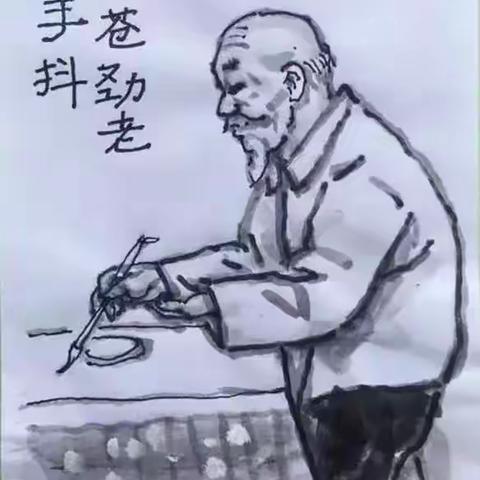 苍劲老
手抖